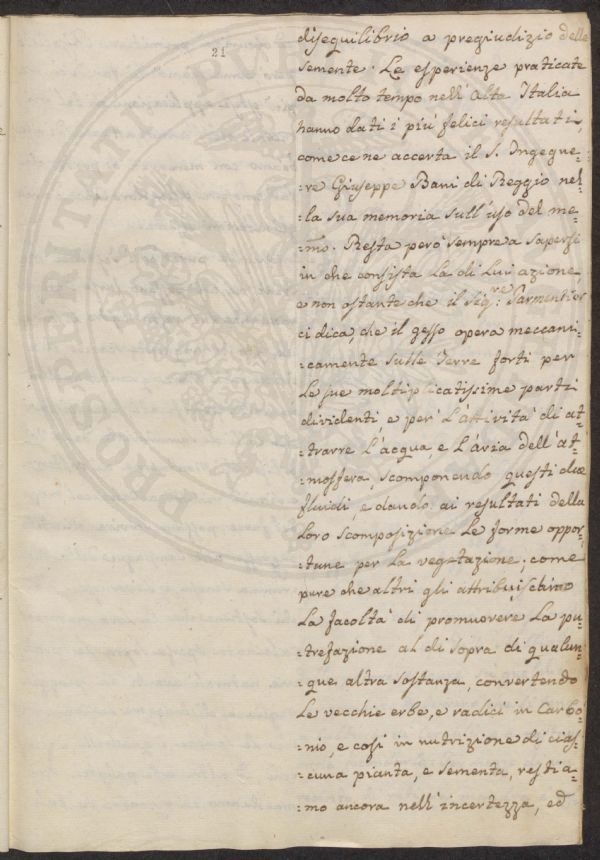 21
disequilibrio a pregiudizio delle
semente. Le esperienze praticate
da molto tempo nell'Alta Italia
hanno dati i più felici resultati,
come ce ne accerta il S. Ingegne-
:re Giuseppe Bani di Reggio nel-
:la sua memoria sull'uso del me-
:mo. Resta però sempre a sapersi
in che consista la di lui azione,
e non ostante che il Sig.re Parmentier
ci dica, che il gesso opera meccani-
:camente sulle Terre forti per
le sue moltiplicatissime parti
dividenti e per l'attività di at-
:trarre l'acqua e l'aria dell'at-
:mosfera, scomponendo questi due
fluidi, e dando ai resultati della
loro scomposizione le forme oppor-
:tune per la vegetazione; come
pure che altri gli attribuischino
la facoltà di promuovere la pu-
:trefazione al di sopra di qualun-
:que altra sostanza, convertendo
le vecchie erbe, e radici in Carbo-
:nio, e così in nutrizione di cias-
:cuna pianta, e sementa, restia-
:mo ancora nell'incertezza, ed
PROSPERITATI PUB